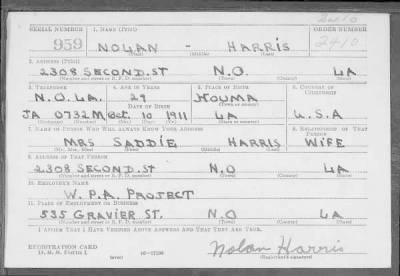 SERIAL NUMBER 1. NAME (Print) ORDER NUMBER
959 NOLAN - HARRIS 2410
(First) (Middle) (Last)
2. ADDRESS (Print)
2308 SECOND.ST N.O. LA
(Number and street or R. F. D. number) (Town) (County) (State)
3. TELEPHONE 4. AGE IN YEARS 5. PLACE OF BIRTH 6. COUNTRY OF CITIZENSHIP
N.O. LA. 29 HOUMA
DATE OF BIRTH
JA 0732M Oct. 10 1911 LA U.S.A
7. NAME OF PERSON WHO WILL ALWAYS KNOW YOUR ADDRESS 8. RELATIONSHIP OF THAT PERSON
MRS SADDIE HARRIS WIFE
(Mr., Mrs., Miss) (First) (Middle) (Last)
9. ADDRESS OF THAT PERSON
2308 SECOND.ST N.O LA
(Number and street or R. F. D. number) (Town) (County) (State)
10. EMPLOYER'S NAME
W.P.A. PROJECT
11. PLACE OF EMPLOYMENT OR BUSINESS
535 GRAVIER ST. N.O LA
(Number and street or R. F. D. number) (Town) (County) (State)
I AFFIRM THAT I HAVE VERIFIED ABOVE ANSWERS AND THAT THEY ARE TRUE.
REGISTRATION CARD
D. S. S. FORM 1 (over) 16-17105 Nolan Harris